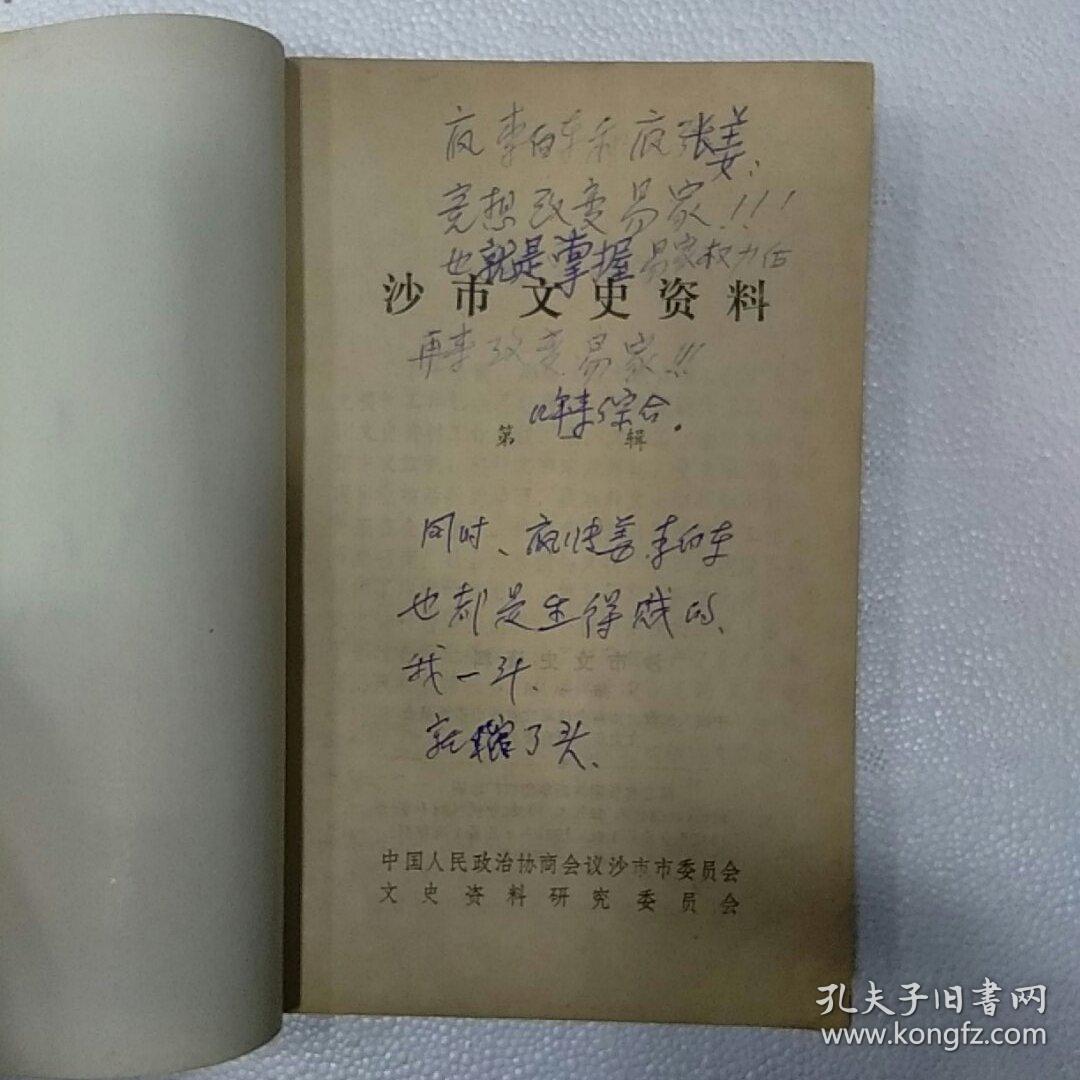 竟想改变易家!!!
也就是掌握易家权力后
沙市文史资料
再来改变易家!!
综合。
第 辑
同时、李
也都是生得贱的、
我一斗、
就缩了头、
中国人民政治协商会议沙市市委员会
文史资料研究委员会
孔夫子旧書网
www.kongfz.com